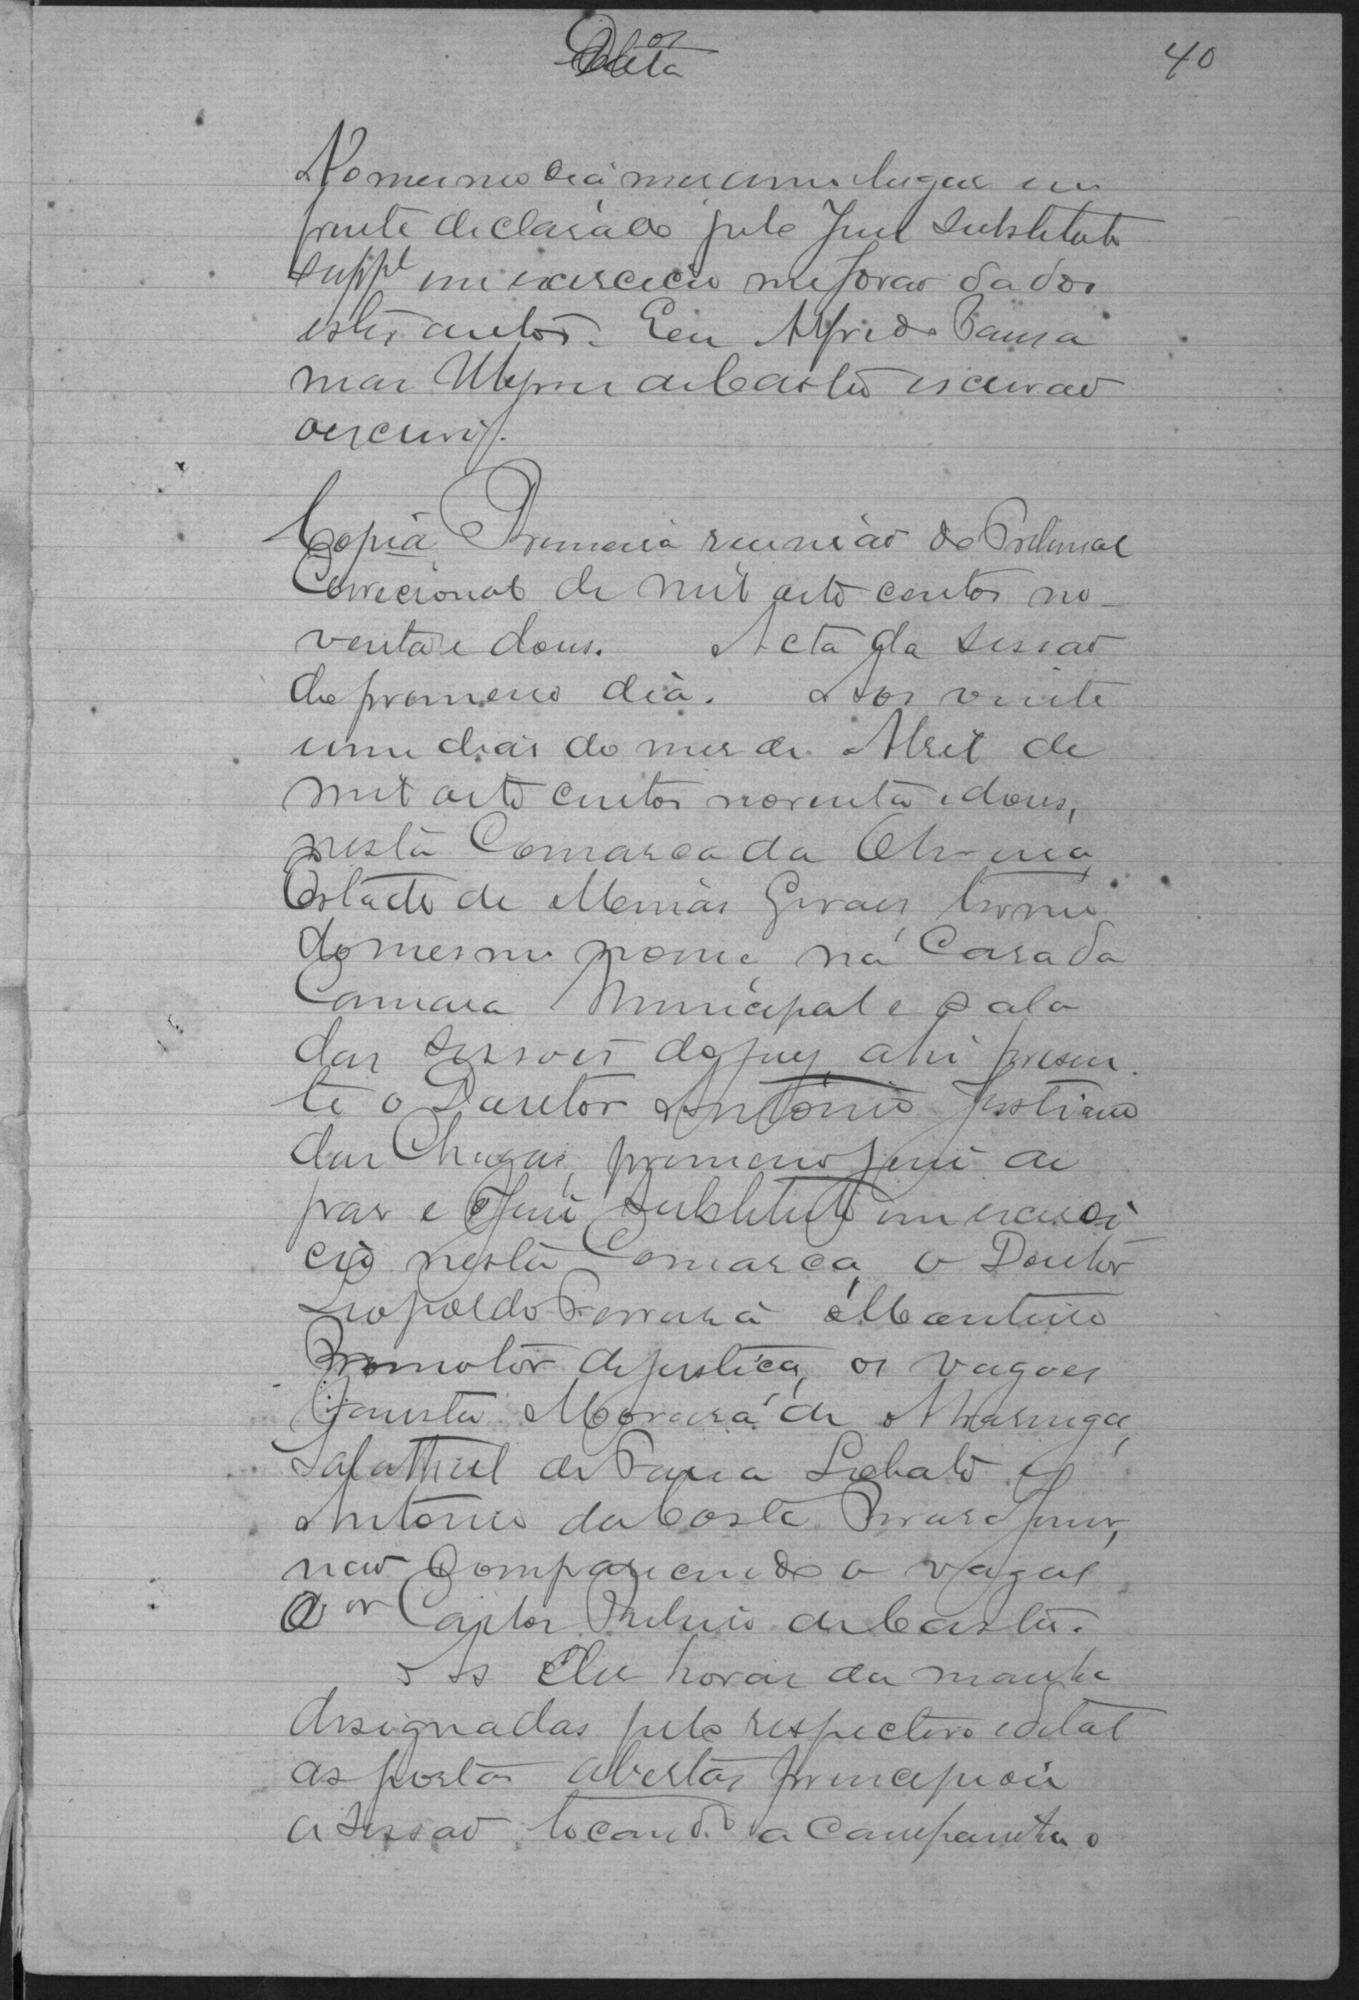 Data
40
No mesmo dia mez anno e lugar em
frente declarado pelo Juiz Substituto
suppe em exercicio me forão dados
estes autos. Eu Alfredo
de Castro escrivão
o escrevi.
Copia Primeira reunião do Tribunal
Correcional de mil oito centos no-
venta e dous. Acta da sessão
do primeiro dia. Aos vinte
um dias do mez de Abril de
mil oito centos noventa e dous,
nesta Comarca da
Estado de Minas Geraes, termo
do mesmo nome, na Casa da
Camara Municipal e sala
das sessoes do jury, ahi presen-
te o Doutor Antonio Justiano
das Chagas, primeiro juiz de
paz e Juiz Substituto em exerci
cio nesta Comarca, o Doutor
Leopoldo Ferreira Monteiro
Promotor de justiça, os vogaes
Fausto Moreira de
Salathiel de Faria Lobato e
Antonio da Costa Junior,
não comparecendo o vogal
Castor de Castro.
As horas da manhã
designadas pelo respectivo edital
as portas abertas principiou
a sessão tocando a campainha o